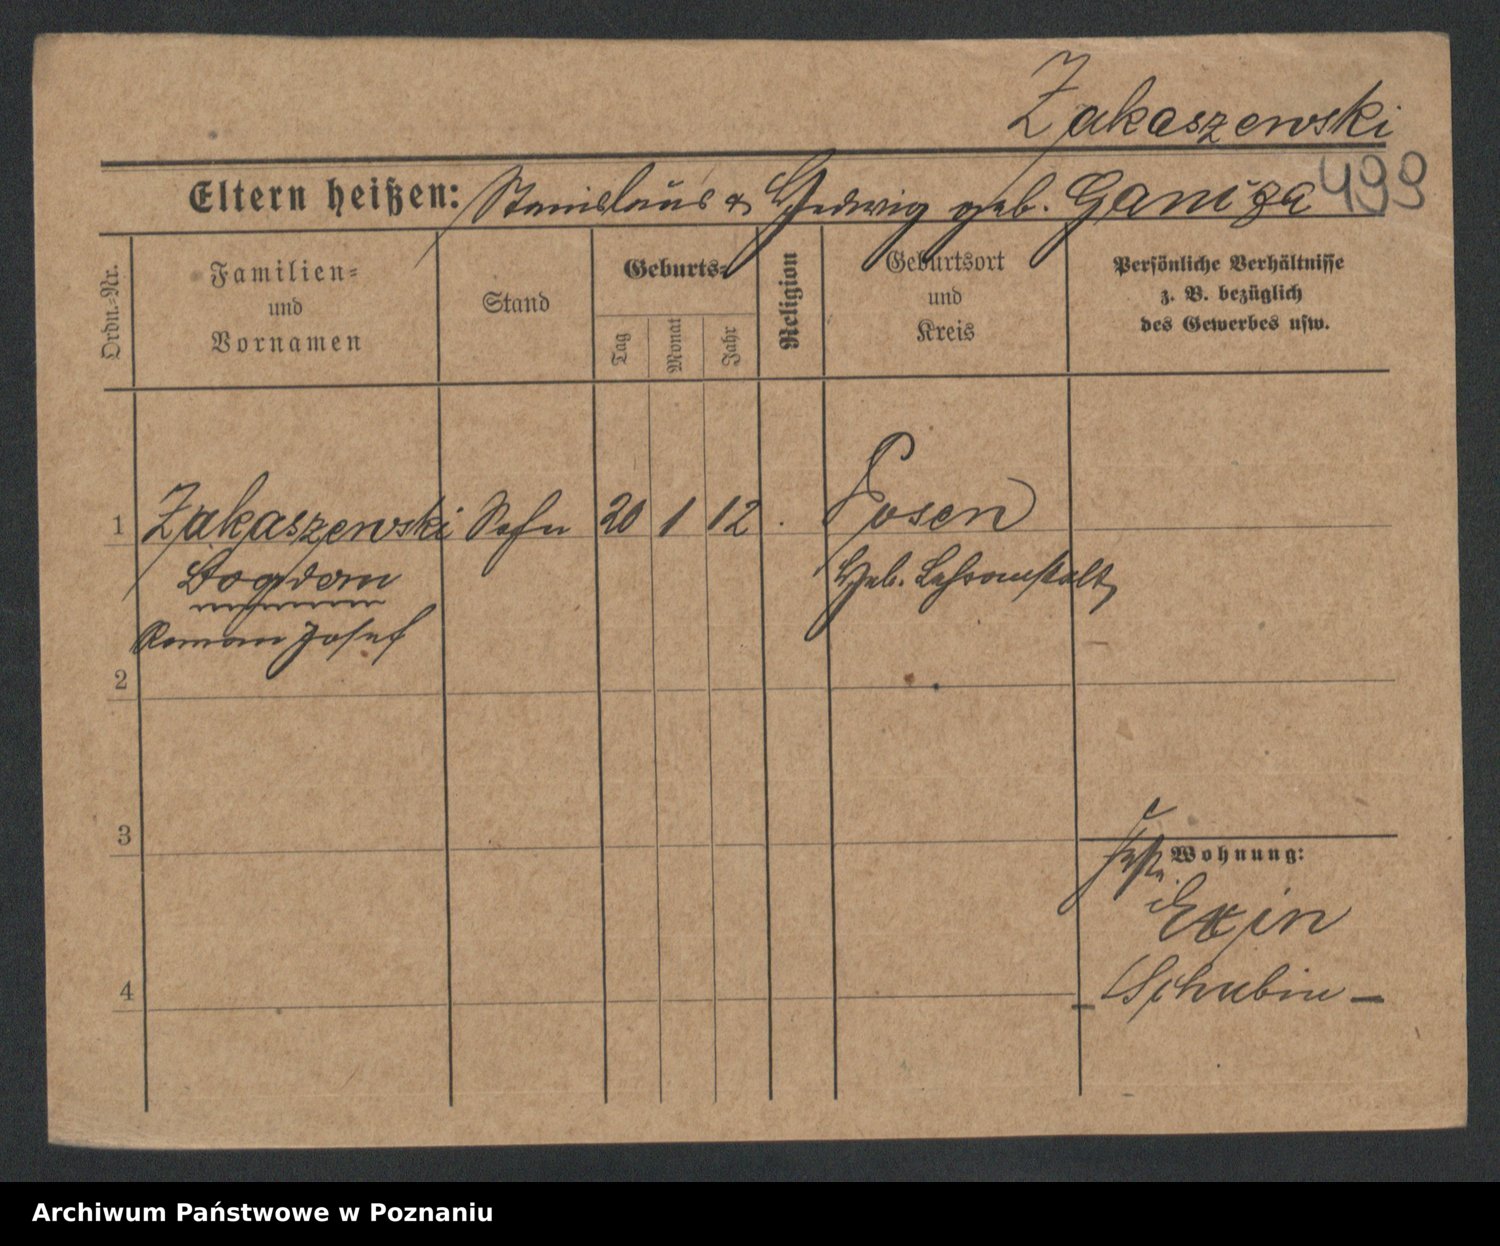 Zakaszewski
Eltern heißen: Stanislaus & Hedwig geb. Ganiza
499
Ordn.-Nr.
Familien-
und
Vornamen
Stand
Geburts-
Tag
Monat
Jahr
Religion
Geburtsort
und
Kreis
Persönliche Verhältnisse
z. B. bezüglich
des Gewerbes usw.
1 Zakaszewski Sohn 20 1 12 Posen
Bogdan
Geb. Lehranstalt
Roman Josef
2
3
Wohnung:
Exin
4
Schubin
Archiwum Państwowe w Poznaniu